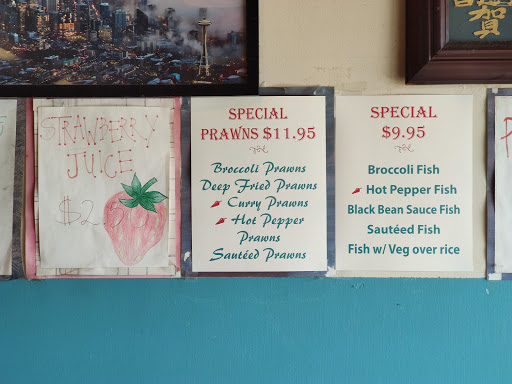 STRAWBERRY
JUICE
SPECIAL
PRAWNS $11.95
Broccoli Prawns
Deep Fried Prawns
Curry Prawns
Hot Pepper
Prawns
Sautéed Prawns
SPECIAL
$9.95
Broccoli Fish
Hot Pepper Fish
Black Bean Sauce Fish
Sautéed Fish
Fish w/ Veg over rice